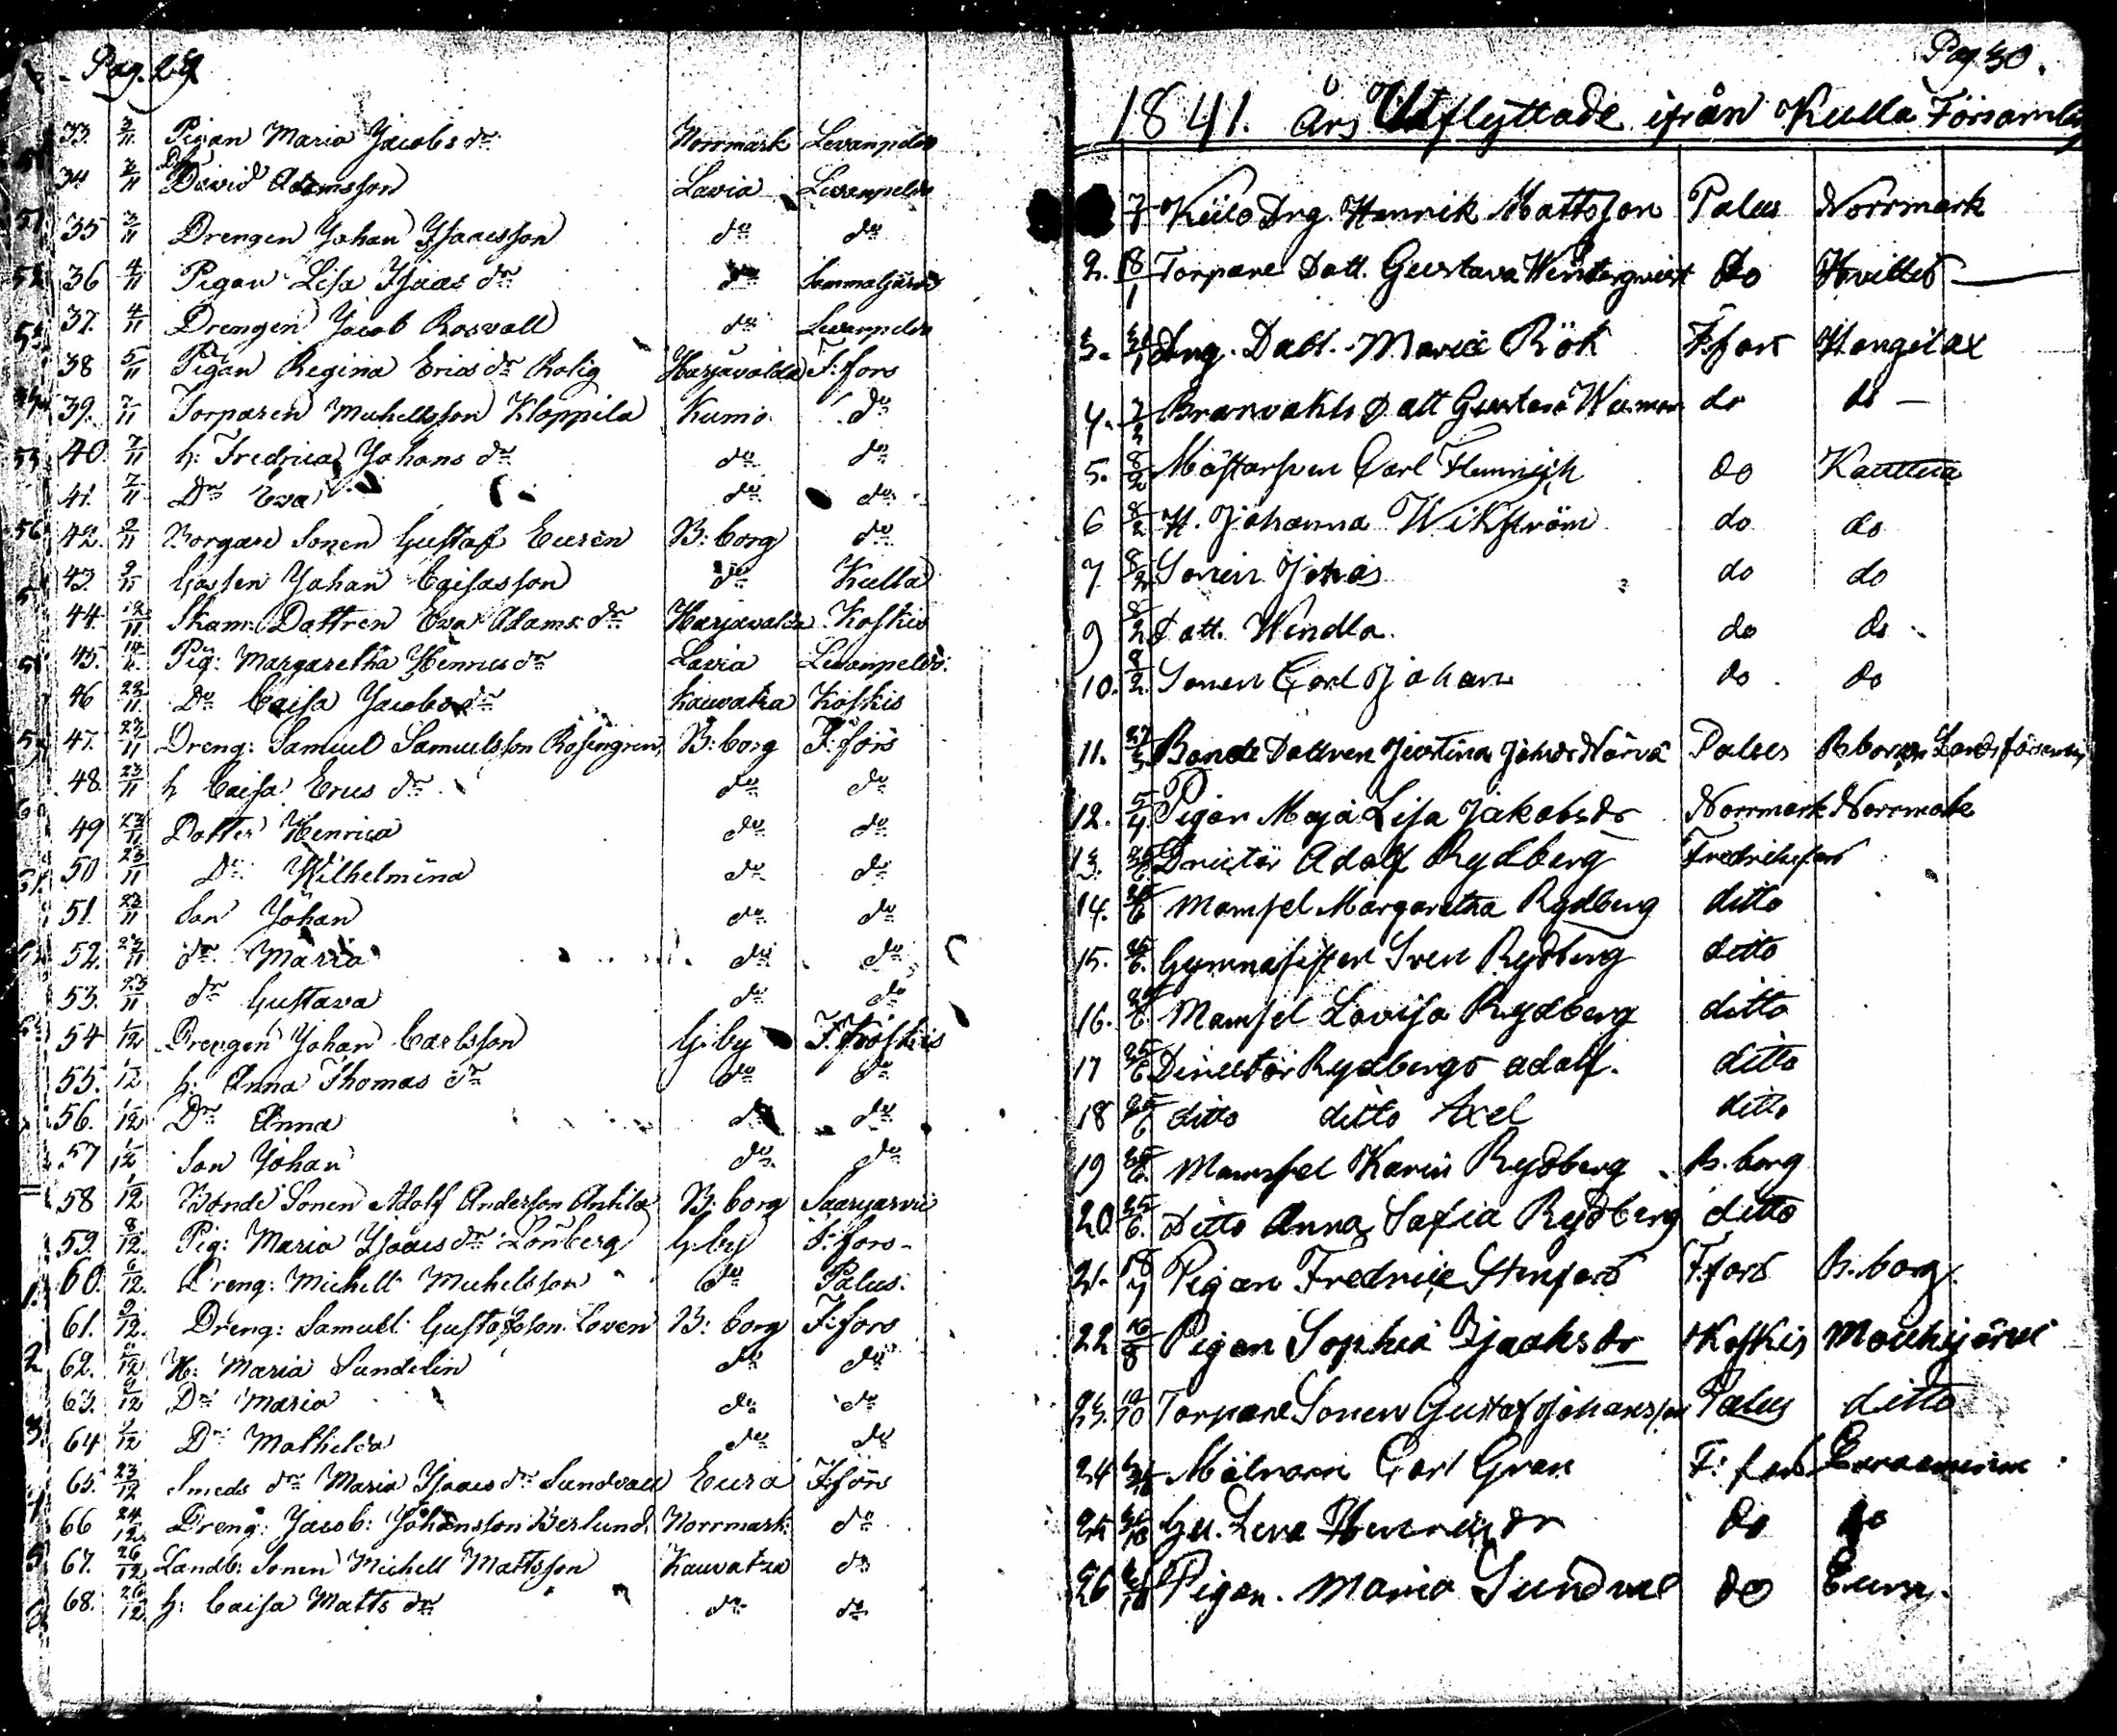 Pag. 29
33. 3/11 Pigan Maria Jacobs dr Norrmark Levanpelds
34 3/11 David Adamsson Lavia Levanpelds
35 3/11 Drengen Johan Isaacsson do do
36 4/11 Pigan Lisa Isaacs dr do
37. 4/11 Drengen Jacob Rosvall do Levanpelds
38 5/11 Pigan Regina Erics dr Rolig Harjavalda F:fors
39. 7/11 Torparen Michellsson Kloppila Kumo do
40. 7/11 h: Fredrica Johans dr do do
41. 7/11 Dr Eva do do
42. 9/11 Borgare Sonen Gustaf Eurén B:borg do
43. 9/11 Gossen Johan Caisasson do Kulla
44. 12/11 Skam: Dottren Eva Adams dr Harjavalda Koskis
45. 14/11 Pig: Margaretha Henrics dr Lavia Levanpelds
46 23/11 Do Caisa Jacobs dr Kauvatsa Koskis
47. 23/11 Dreng: Samuel Samuelsson Rosengren B:borg F:fors
48. 23/11 h Caisa Erics dr do do
49 23/11 Dotter Henrica do do
50 23/11 Dr Wilhelmina do do
51. 23/11 Son Johan do do
52. 23/11 dr Maria do do
53. 23/11 dr Gustava do do
54 1/12 Drengen Johan Carlsson G:by
55. 1/12 h: Anna Thomas dr do do
56. 1/12 Dr Anna do do
57 1/12 Son Johan do do
58 1/12 Bonde Sonen Adolf Anderson Anttila B:borg Saarjarvi
59. 8/12 Pig: Maria Isaacs dr Lönberg G:by F:fors
60. 6/12 Dreng: Michell Michelsson do Palus
61. 9/12 Dreng: Samuel Gustafsson Loven B:borg F:fors
62. 9/12 H: Maria Sundelin do do
63. 9/12 Dr Maria do do
64 9/12 Dr Mathilda do do
65. 23/12 Smeds dr Maria Isaacs dr Sundvall Eura F:fors
66 24/12 Dreng: Jacob: Johansson Berlund Norrmark do
67. 26/12 Landb: Sonen Michell Mattsson Kauvatsa do
68. 26/12 h: Caisa Matts dr do do
Pag 30.
1841. Års Utflyttade ifrån Kulla Församling
Drg. Henrik Mattsson Palus Norrmark
2. 18/1 Torpare Dott. Gustava Winterqvist do Hvittis
3. Drg. Dott. Maria Rök F:fors Hongilax
4. 7/2 Dott Gustava do do
5. 8/2 Mästarsven Carl Flemmich do Kauttua
6 8/2 H. Johanna Wikström do do
7 8/2 Sonen do do
9 8/2 Dott. Wendla do do
10. 8/2 Sonen Carl Johan do do
11. Bonde Dottren Palus B.borgs Landsförsamling
12. 5/4 Pigan Maja Lisa Jakobsdr Norrmark Norrmark
13. 25/6 Adolf Rydberg Fredriksfors
14. 25/6 Mamsel Margaretha Rydberg ditto
15. 25/6. Gymnasisten Sven Rydberg ditto
16. 25/6 Mamsel Lovisa Rydberg ditto
17 25/6 Directör Rydbergs Adolf. ditto
18 25/6 ditto ditto Axel ditto
19 25/6. Mamsel Karin Rydberg B.borg
20 25/6. Ditto Anna Sofia Rydberg ditto
21. Pigan Fredrica Stenfors F:fors B.borg.
22 16/8 Pigan Sophia Isaksdr Koskis Mouhijärvi
23. 19/10 Torpare Sonen Gustaf Johansson Palus ditto
24 Målvarn Carl Gran F:fors
25 Hu. Lena Henricsdr do do
26 Pigan. Maria Sundvall do Eura.